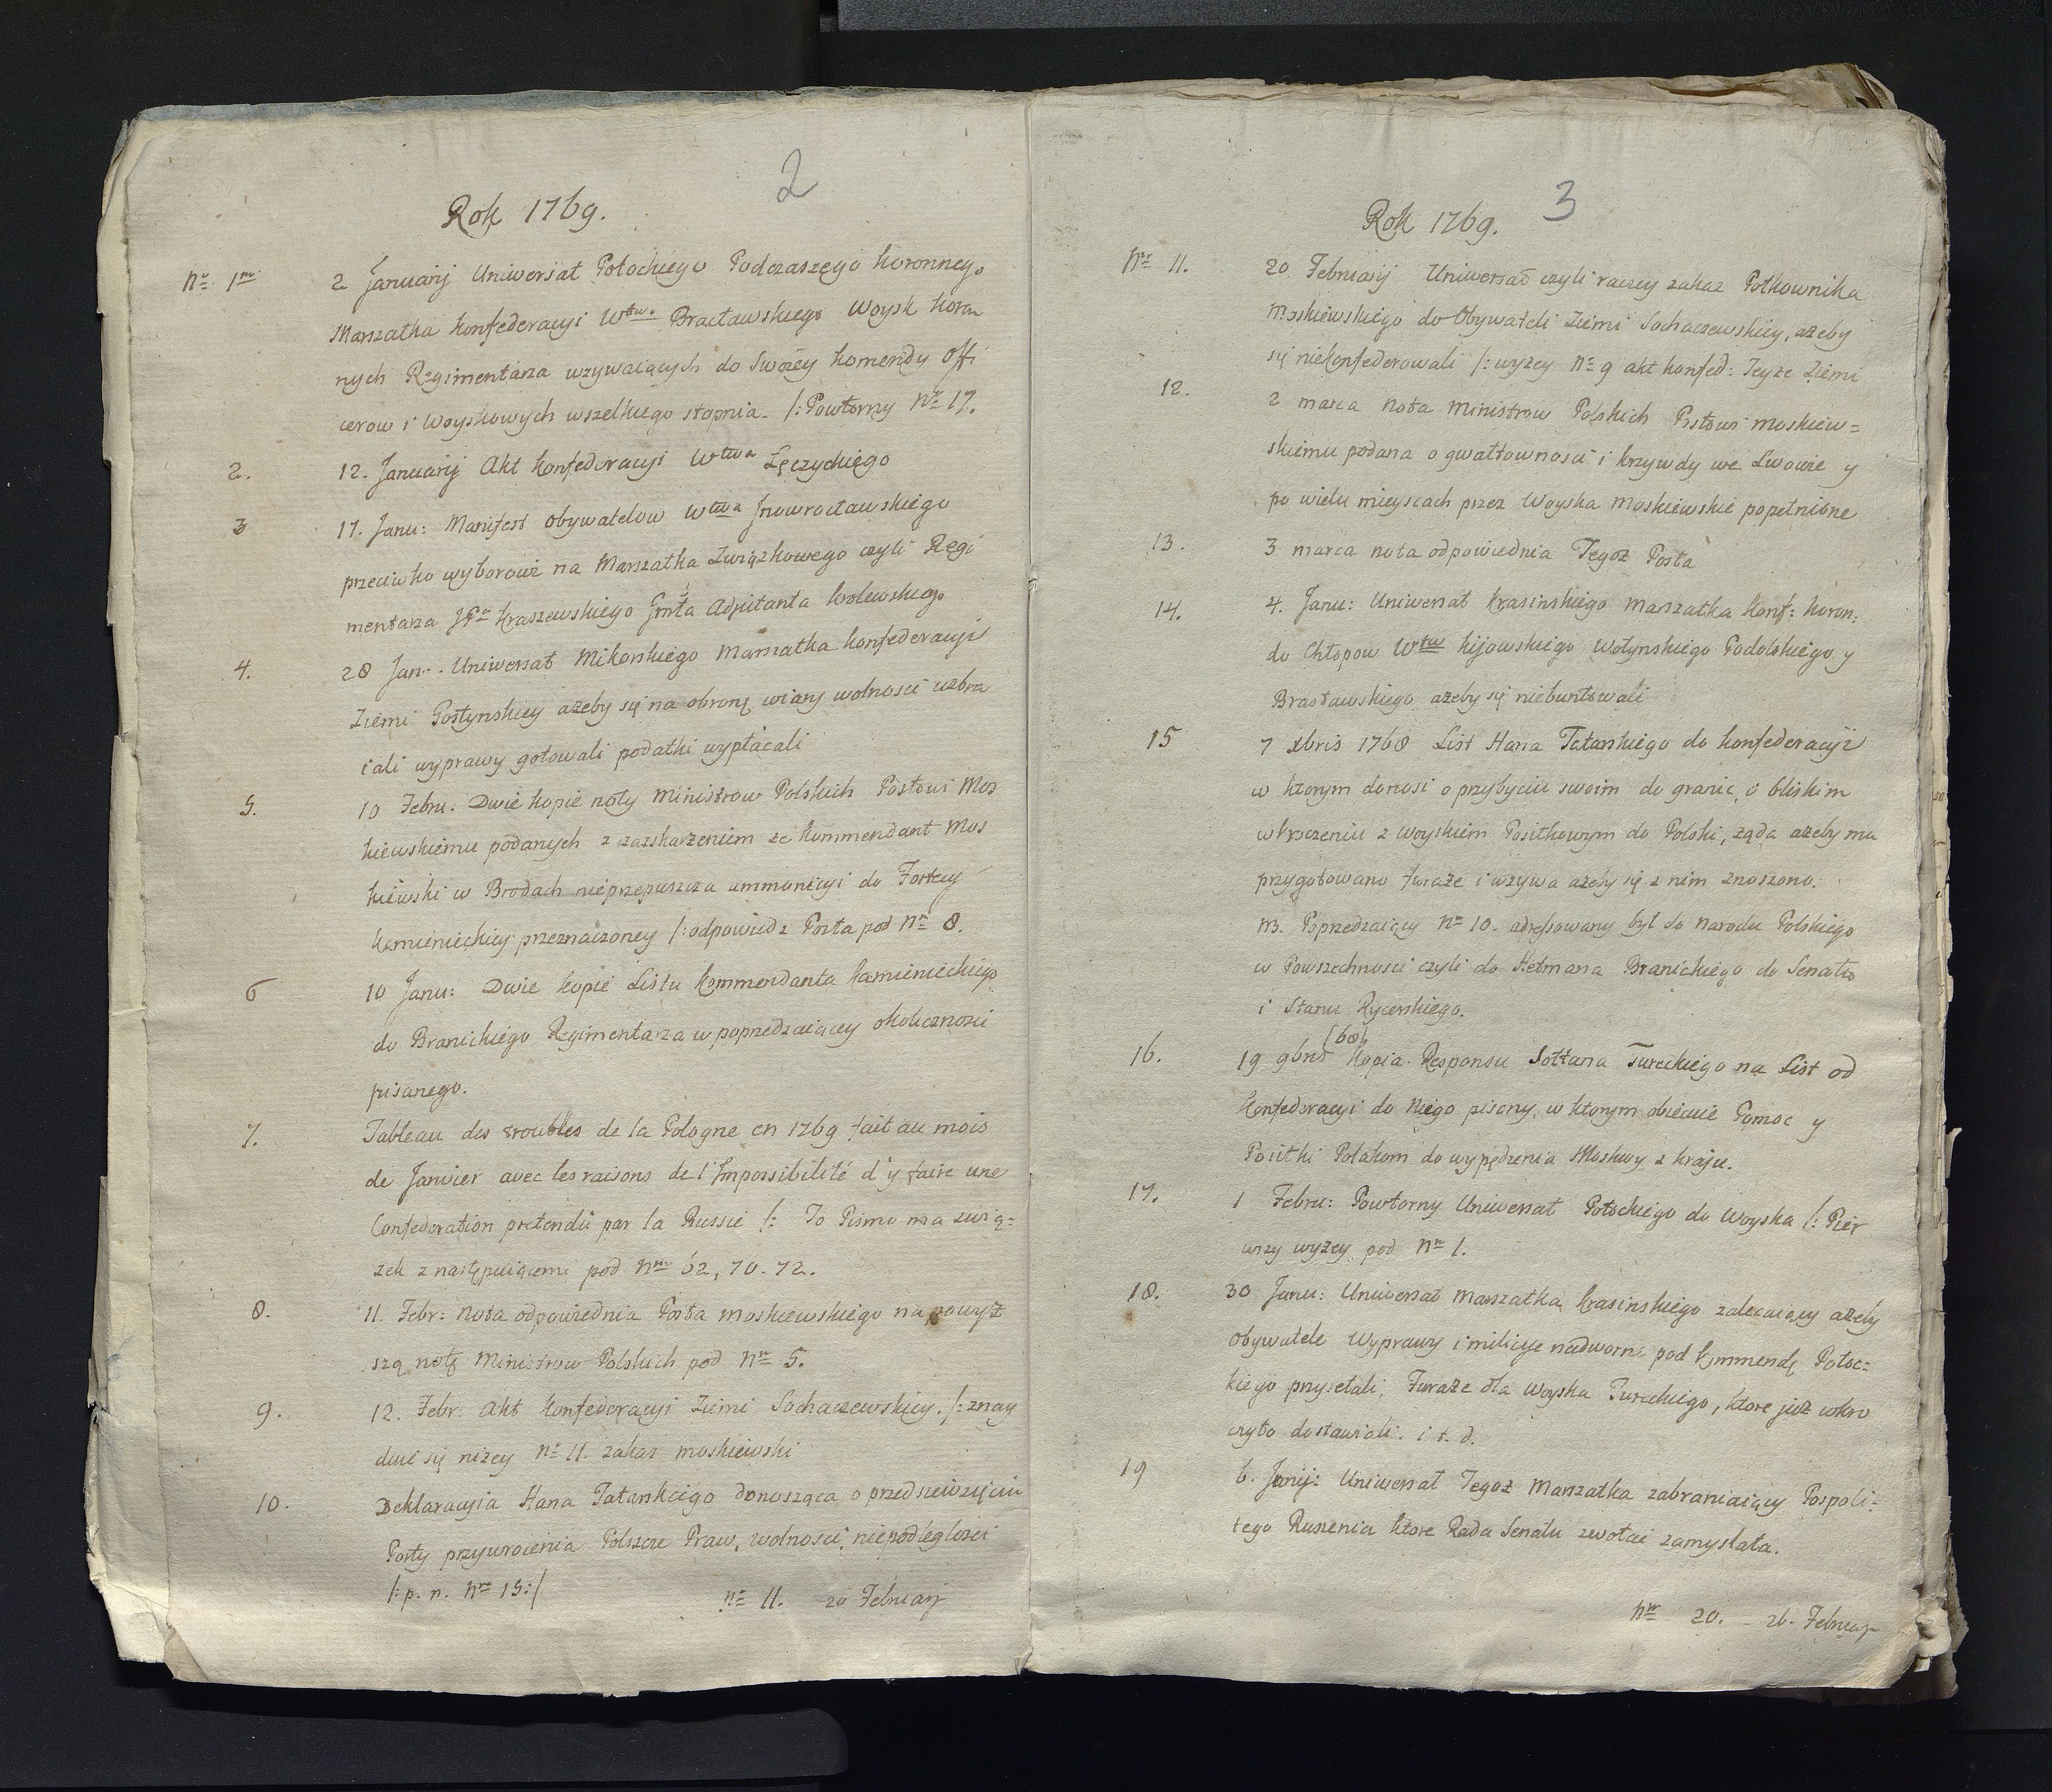 2
Rok 1769.
Nr 1m 2 Januarij Uniwersał Potockiego Podczaszego Koronnego
Marszałka Konfederacyi Wtwa Bracławskiego Woysk Koron
nych Regimentarza wzywaiących do Swoiey Komendy Offi
cerow i Woyskowych wszelkiego stopnia. /: Powtorny Nr 17.
2. 12. Januarij Akt Konfederacyi Wtwa Łęczyckiego
3 17. Janu: Manifest Obywatelow Wtwa Jnowrocławskiego
przeciwko wyborowi na Marszałka Związkowego czyli Regi
mentarza JPa Kraszewskiego Adjutanta Krolewskiego
4. 28 Jan. Uniwersał Mikorskiego Marszałka Konfederacyi
Ziemi Gostynskiey ażeby się na obronę wiary wolnosci uzbra
iali wyprawy gotowali podatki wypłacali
5. 10 Febru. Dwie kopie noty Ministrow Polskich Posłowi Mos
kiewskiemu podanych z zaskarżeniem że Kommendant Mos
kiewski w Brodach nieprzepuszcza ammunicyi do Fortecy
Kamienieckiey przeznaczoney /: odpowiedz Posła pod Nr 8.
6 10 Janu: Dwie kopie Listu Kommendanta Kamienieckiego
do Branickiego Regimentarza w poprzedzaiącey okolicznosci
pisanego.
7. Tableau des troubles de la Pologne en 1769 fait au mois
de Janvier avec les raisons de l'Impossibilité d'y faire une
Confederation pretendü par la Russie /: To Pismo ma zwią=
zek z następuiącemi pod Nm 62, 70. 72.
8. 11. Febr: Nota odpowiednia Posła Moskiewskiego na powyż
szą notę Ministrow Polskich pod Nr 5.
9. 12. Febr. Akt Konfederacyi Ziemi Sochaczewskiey. /: znay
duie się niżey Nr 11. zakaz moskiewski
10. Deklaracyia Hana Tatarskiego donosząca o przedsiewzięciu
Porty przywrocenia Polszcze Praw, wolnosci, niepodległosci
/: p. n. Nro 15 :/
Nr 11. 20 Februarij
3
Rok 1769.
Nr 11. 20 Februarij Uniwersał czyli raczey zakaz Połkownika
Moskiewskiego do Obywateli Ziemi Sochaczewskiey, ażeby
się niekonfederowali /: wyzey Nr 9 akt konfed: Teyże Ziemi
12. 2 marca Nota Ministrow Polskich Posłowi moskiew=
skiemu podana o gwałtownosci i krzywdy we Lwowie y
po wielu mieyscach przez Woyska Moskiewskie popełnione
13. 3 marca nota odpowiednia Tegoż Posła
14. 4. Janu: Uniwersał Krasinskiego Marszałka Konf: Koron:
do Chłopow Wtw Kijowskiego Wołynskiego Podolskiego y
Brasławskiego ażeby się niebuntowali
15 7 Xbris 1768 List Hana Tatarskiego do Konfederacyi
w ktorym donosi o przybyciu swoim do granic, o bliskim
wkroczeniu z woyskiem Posiłkowym do Polski, ząda ażeby mu
przygotowano furaże i wzywa ażeby się z nim znoszono.
Poprzedzaiący Nr 10. adressowany był do Narodu Polskiego
w Powszechnosci czyli do Hetmana Branickiego do Senatu
i Stanu Rycerskiego.
(68)
16. 19 9bris Kopia Responsu Sołtana Tureckiego na List od
Konfederacyi do Niego pisany, w ktorym obiecuie Pomoc y
Posiłki Polakom do wypędzenia Moskwy z kraju.
17. 1 Febru: Powtorny Uniwersał Potockiego do Woyska /: Pier
wszy wyżey pod Nr 1.
18. 30 Janu: Uniwersał Marszałka Krasinskiego zalecaiący ażeby
Obywatele Wyprawy i milicye nadworne pod kommendę Potoc=
kiego przysełali, Furaże dla Woyska Tureckiego, ktore już wkro
czyło dostawiali. i t. d.
19 6. Uniwersał Tegoż Marszałka zabraniaiący Pospoli=
tego Ruszenia ktore Rada Senatu zwołać zamyslała.
Nr 20. 26. Februarij